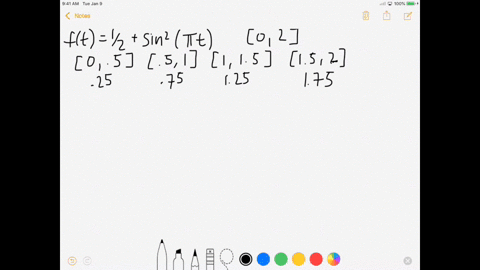 9:41 AM Tue Jan 9
100%
Notes
f(t) = 1/2 + sin² (πt) [0, 2]
[0, .5] [.5, 1] [1, 1.5] [1.5, 2]
.25 .75 1.25 1.75